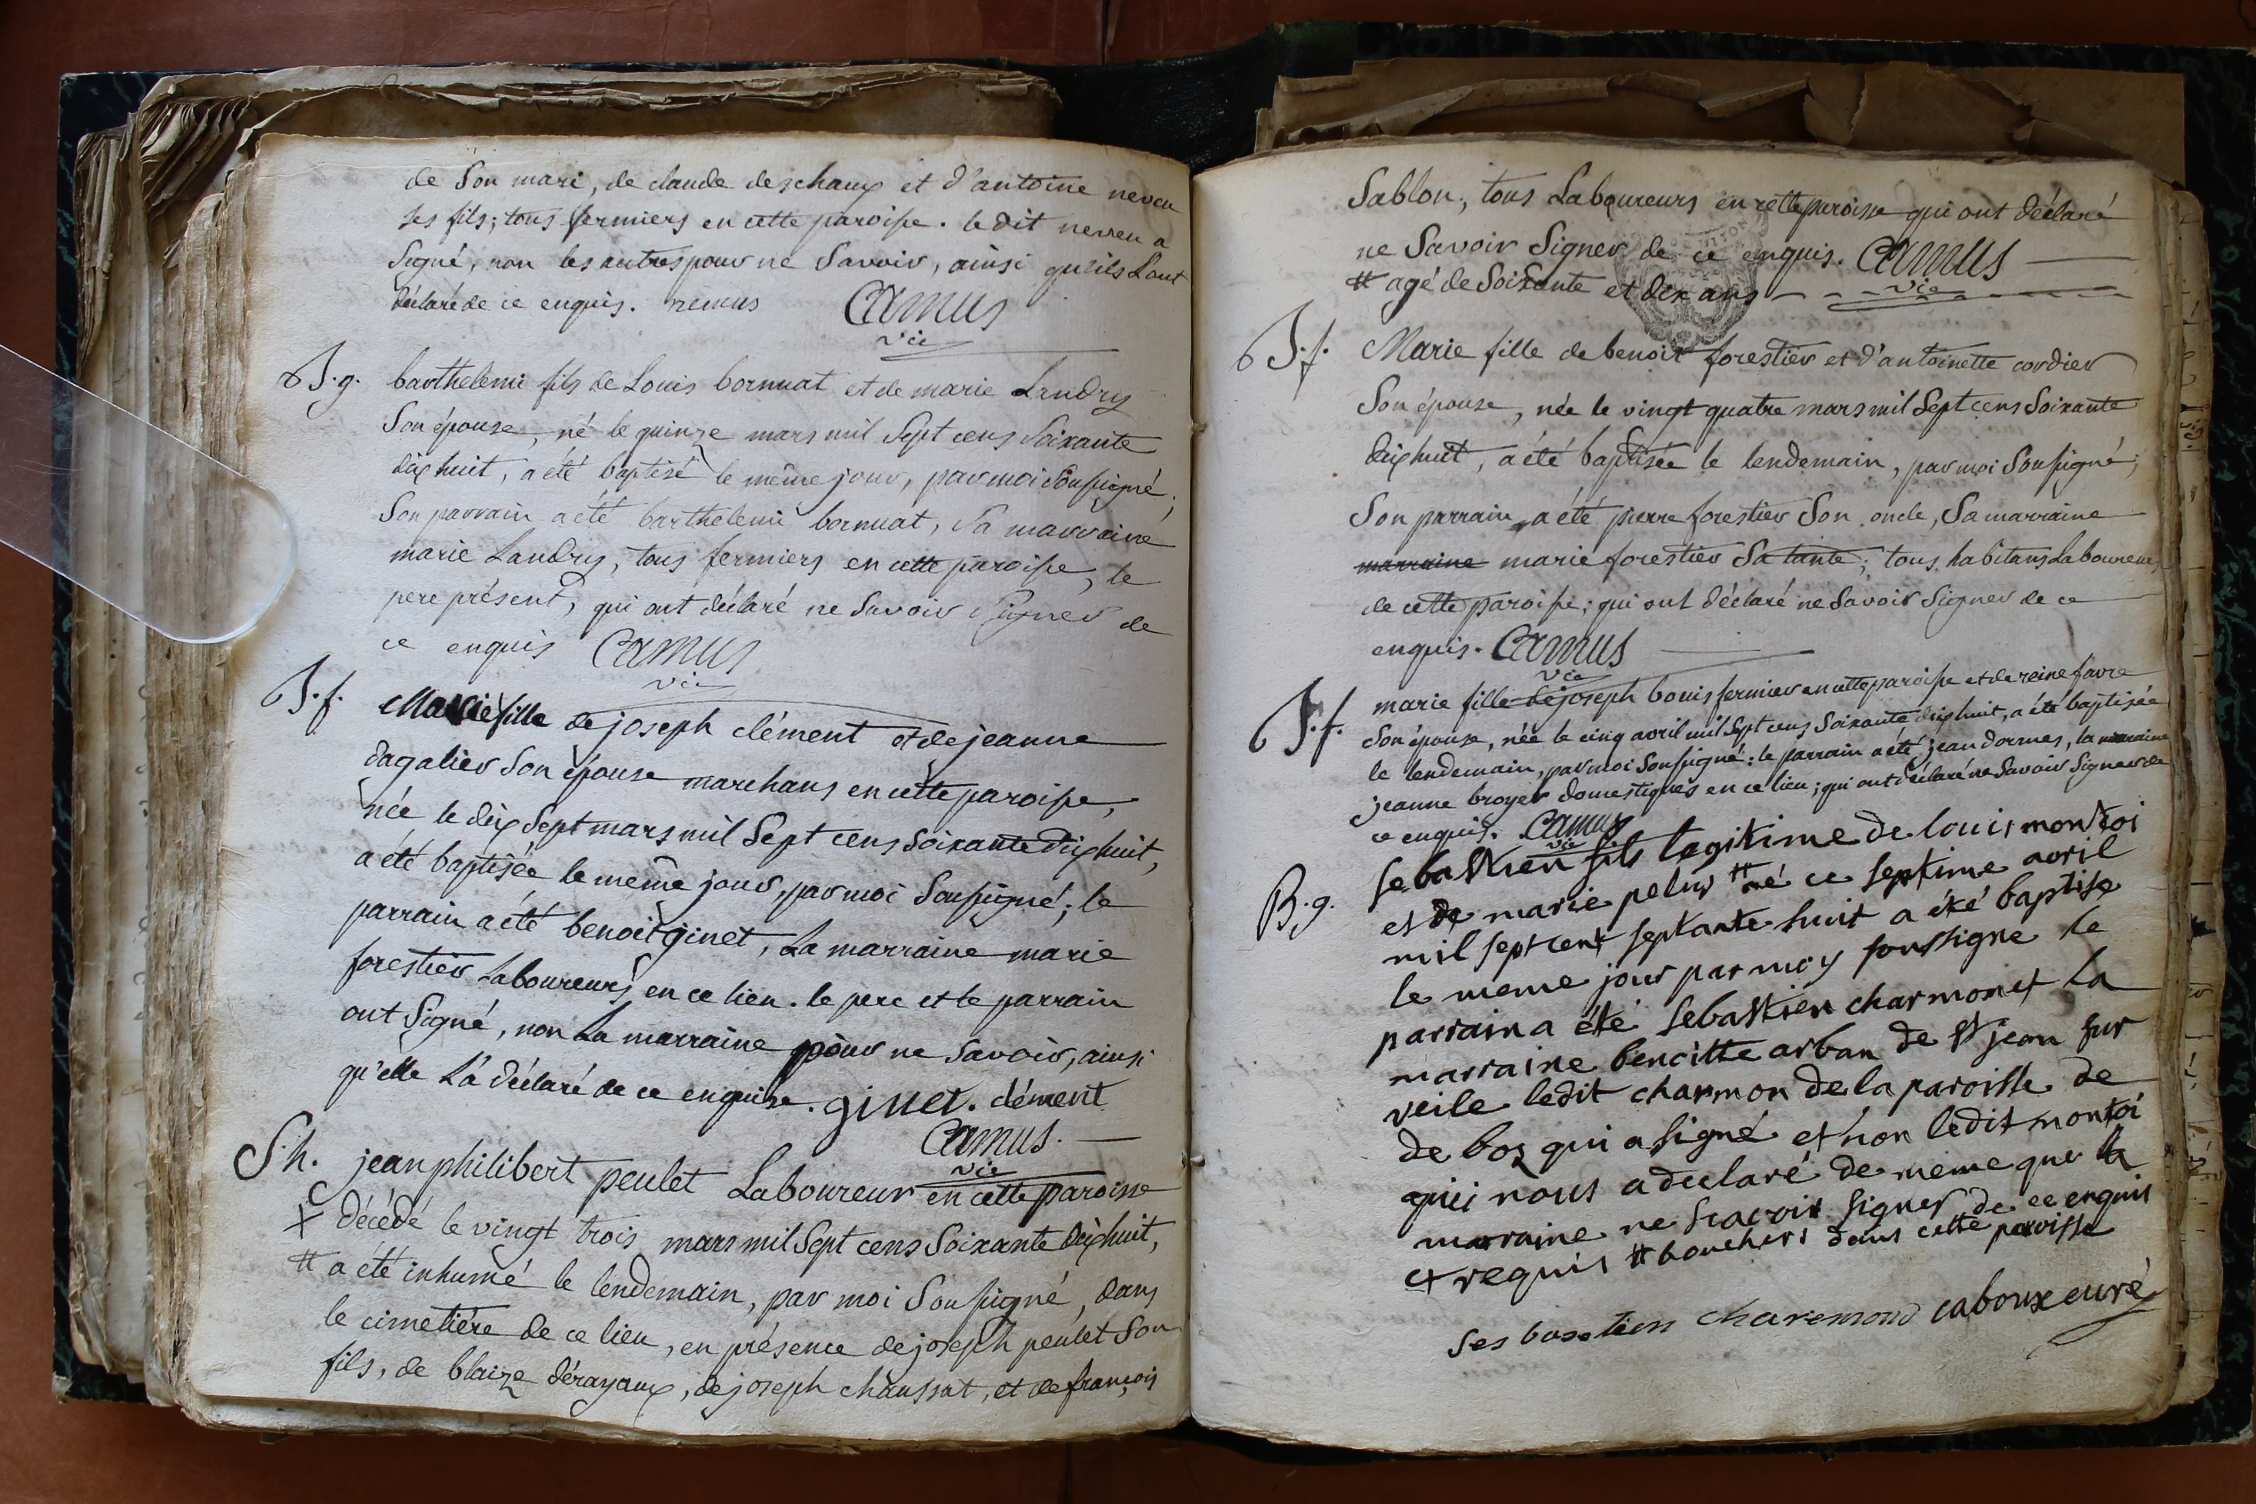 de Son mari, de claude deschaux et d'antoine neveu
ses fils; tous fermiers en cette paroisse. le dit neveu a
Signé, non les autres pour ne Savoir, ainsi qu'ils L'ont
déclaré de ce enquis. nevus Camus
vic
B.g. barthelemi fils de Louis bornuat et de marie Landry
Son épouse, né le quinze mars mil Sept cens Soixante
dix huit, a été baptisé le même jour, par moi Soussigné;
Son parrain a été barthelemi bornuat, Sa marraine
marie Landry, tous fermiers en cette paroisse, le
pere présent, qui ont déclaré ne Savoir Signer de
ce enquis Camus
vic
B.f. Marie fille de joseph clément et de jeanne
dagalier Son épouse marchans en cette paroisse,
née le dix Sept mars mil Sept cens Soixante dix huit,
a été baptisée le même jour, par moi Soussigné; le
parrain a été benoit ginet, La marraine marie
forestier Laboureurs en ce lieu. le pere et le parrain
ont Signé, non La marraine pour ne Savoir, ainsi
qu'elle L'a déclaré de ce enquise. ginet. clément
Camus.
vic
S.h. jean philibert peulet Laboureur en cette paroisse
décédé le vingt trois mars mil Sept cens Soixante dix huit,
# a été inhumé le lendemain, par moi Soussigné, dans
le cimetiére de ce lieu, en présence de joseph peulet Son
fils, de blaize dérayaux, de joseph chaussat, et de françois
Sablon, tous Laboureurs en cette paroisse qui ont déclaré
ne Savoir Signer de ce enquis. Camus
# agé de Soixante et dix ans vic
B.f. Marie fille de benoit forestier et d'antoinette cordier
Son épouse, née le vingt quatre mars mil Sept cens Soixante
dix huit, a été baptisée le lendemain, par moi Soussigné;
Son parrain a été pierre forestier Son oncle, Sa marraine
marraine marie forestier Sa tante; tous habitans Laboureurs
de cette paroisse; qui ont déclaré ne Savoir Signer de ce
enquis. Camus
vic
B.f. marie fille de joseph bouis fermier en cette paroisse et de reine favre
Son épouse, née le cinq avril mil Sept cens Soixante dix huit, a été baptisée
le lendemain, par moi Soussigné: le parrain a été jean dormes, la marraine
jeanne broyer domestiques en ce lieu; qui ont déclaré ne Savoir Signer de
ce enquis. Camus
vic
B.g. sebastien fils legitime de louis montoi
et de marie pelus # né ce septime avril
mil sept cent septante huit a été baptise
le meme jour par moy soussigne le
parrain a été sebastien charmon et la
marraine benoitte arban de st jean sur
veile ledit charmon de la paroisse de
de boz qui a signé et non ledit montoi
qui nous a declaré de meme que la
marraine ne scavoir signer de ce enquis
et requis # bouchers dans cette paroisse
ses bastien charemond caboux curé